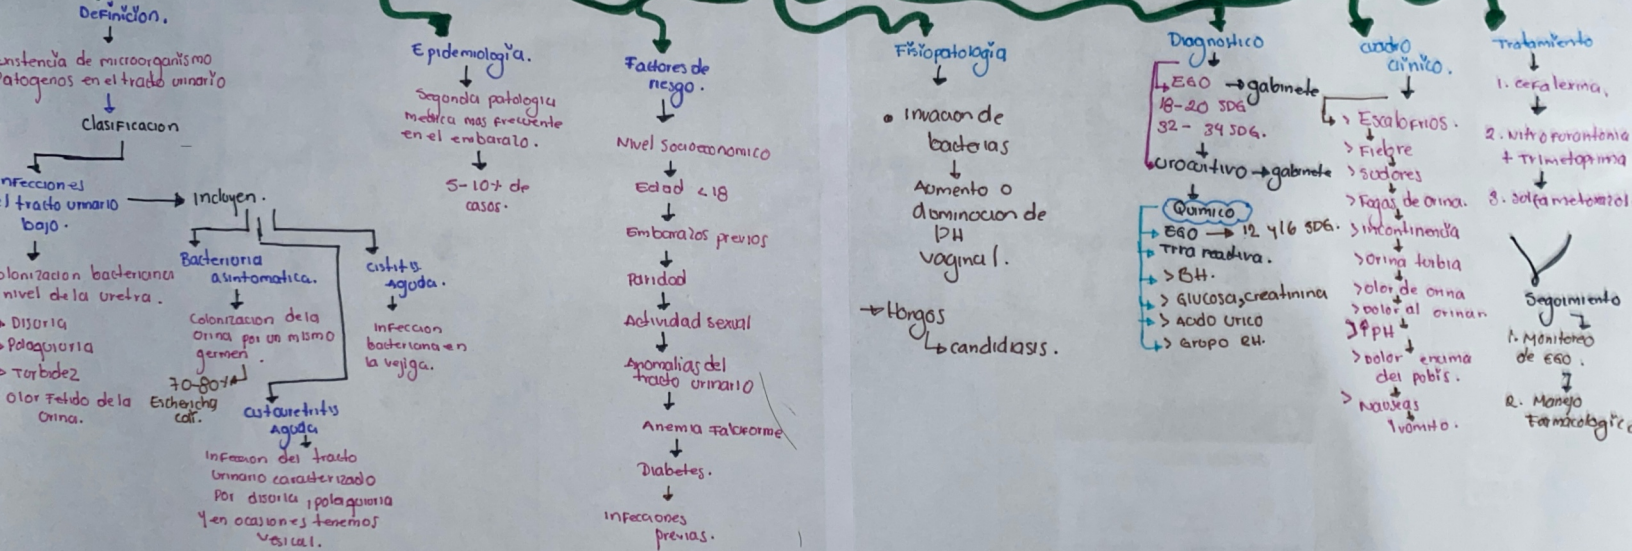 Definición.
nstencia de microorganismo
atogenos en el tracto urinario
Clasificacion
nfecciones
l tracto urinario
bajo.
Incluyen.
olonizacion bacteriana
nivel de la uretra.
Disuria
Polaquiuria
Turbidez
Olor Fetido de la
Orina.
Bacteriuria
asintomatica.
Colonizacion de la
Orina por un mismo
germen.
70-80%
Escherichia
coli.
cistitis
Aguda.
Infeccion
bacteriana en
la vejiga.
cistouretritis
Aguda
Infeccion del tracto
Urinario caracterizado
Por disuria, polaquiuria
y en ocasiones tenemos
vesical.
Epidemiología.
Segunda patologia
medica mas frecuente
en el embarazo.
5-10% de
casos.
Factores de
riesgo.
Nivel Socioeconomico
Edad <18
Embarazos previos
Paridad
Actividad sexual
Anomalias del
tracto urinario
Anemia Falciforme
Diabetes.
Infecciones
previas.
Fisiopatología
• Invacion de
bacterias
Aumento o
disminucion de
PH
vaginal.
→ Hongos
candidiasis.
Diagnostico
EGO → gabinete
18-20 SDG
32 - 34 SDG.
Urocultivo → gabinete
Quimico
EGO → 12 y 16 SDG.
Tira reactiva.
> BH.
> Glucosa, creatinina
> Acido urico
> Grupo RH.
cuadro
clinico.
> Escalofrios.
> Fiebre
> Sudores
> Fugas de orina.
> Incontinencia
> Orina turbia
> olor de orina
> Dolor al orinar
> ↑PH
> Dolor encima
del pubis.
> Nauseas
Y vomito.
Tratamiento
1. cefalexina,
2. Nitrofurantonia
+ Trimetoprima
3. Sulfametoxazol
Seguimiento
1. Monitoreo
de EGO.
2. Manejo
Farmacologico